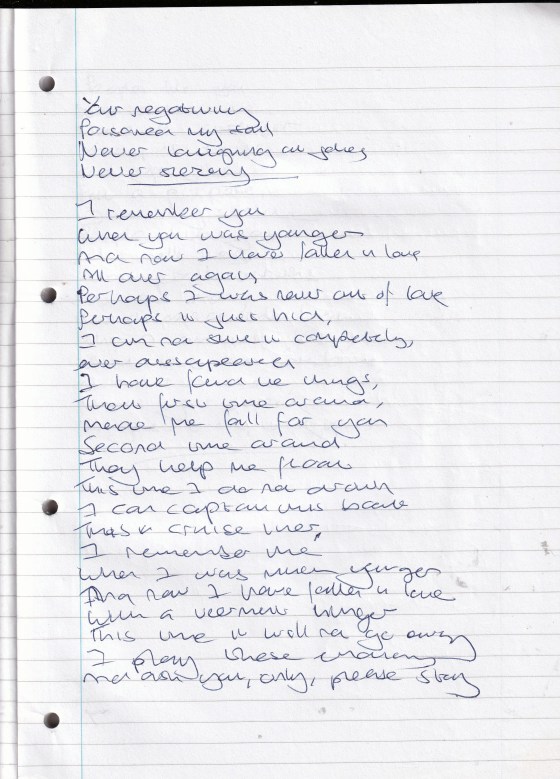 Your negativity
Poisoned my soul
Never laughing at jokes
Never
I remember you
When you was younger
And now I have fallen in love
All over again
Perhaps I was never out of love
Perhaps it just hid,
I am not sure it completely,
ever dissapeared
I have found the things,
That first time around,
made me fall for you
Second time around
They help me float
This time I do not drown
I can captain this boat
This cruise liner,
I remember me
When I was much younger
And now I have fallen in love
With a vehement hunger
This time it will not go away
I play these
And ask you, only, please stay